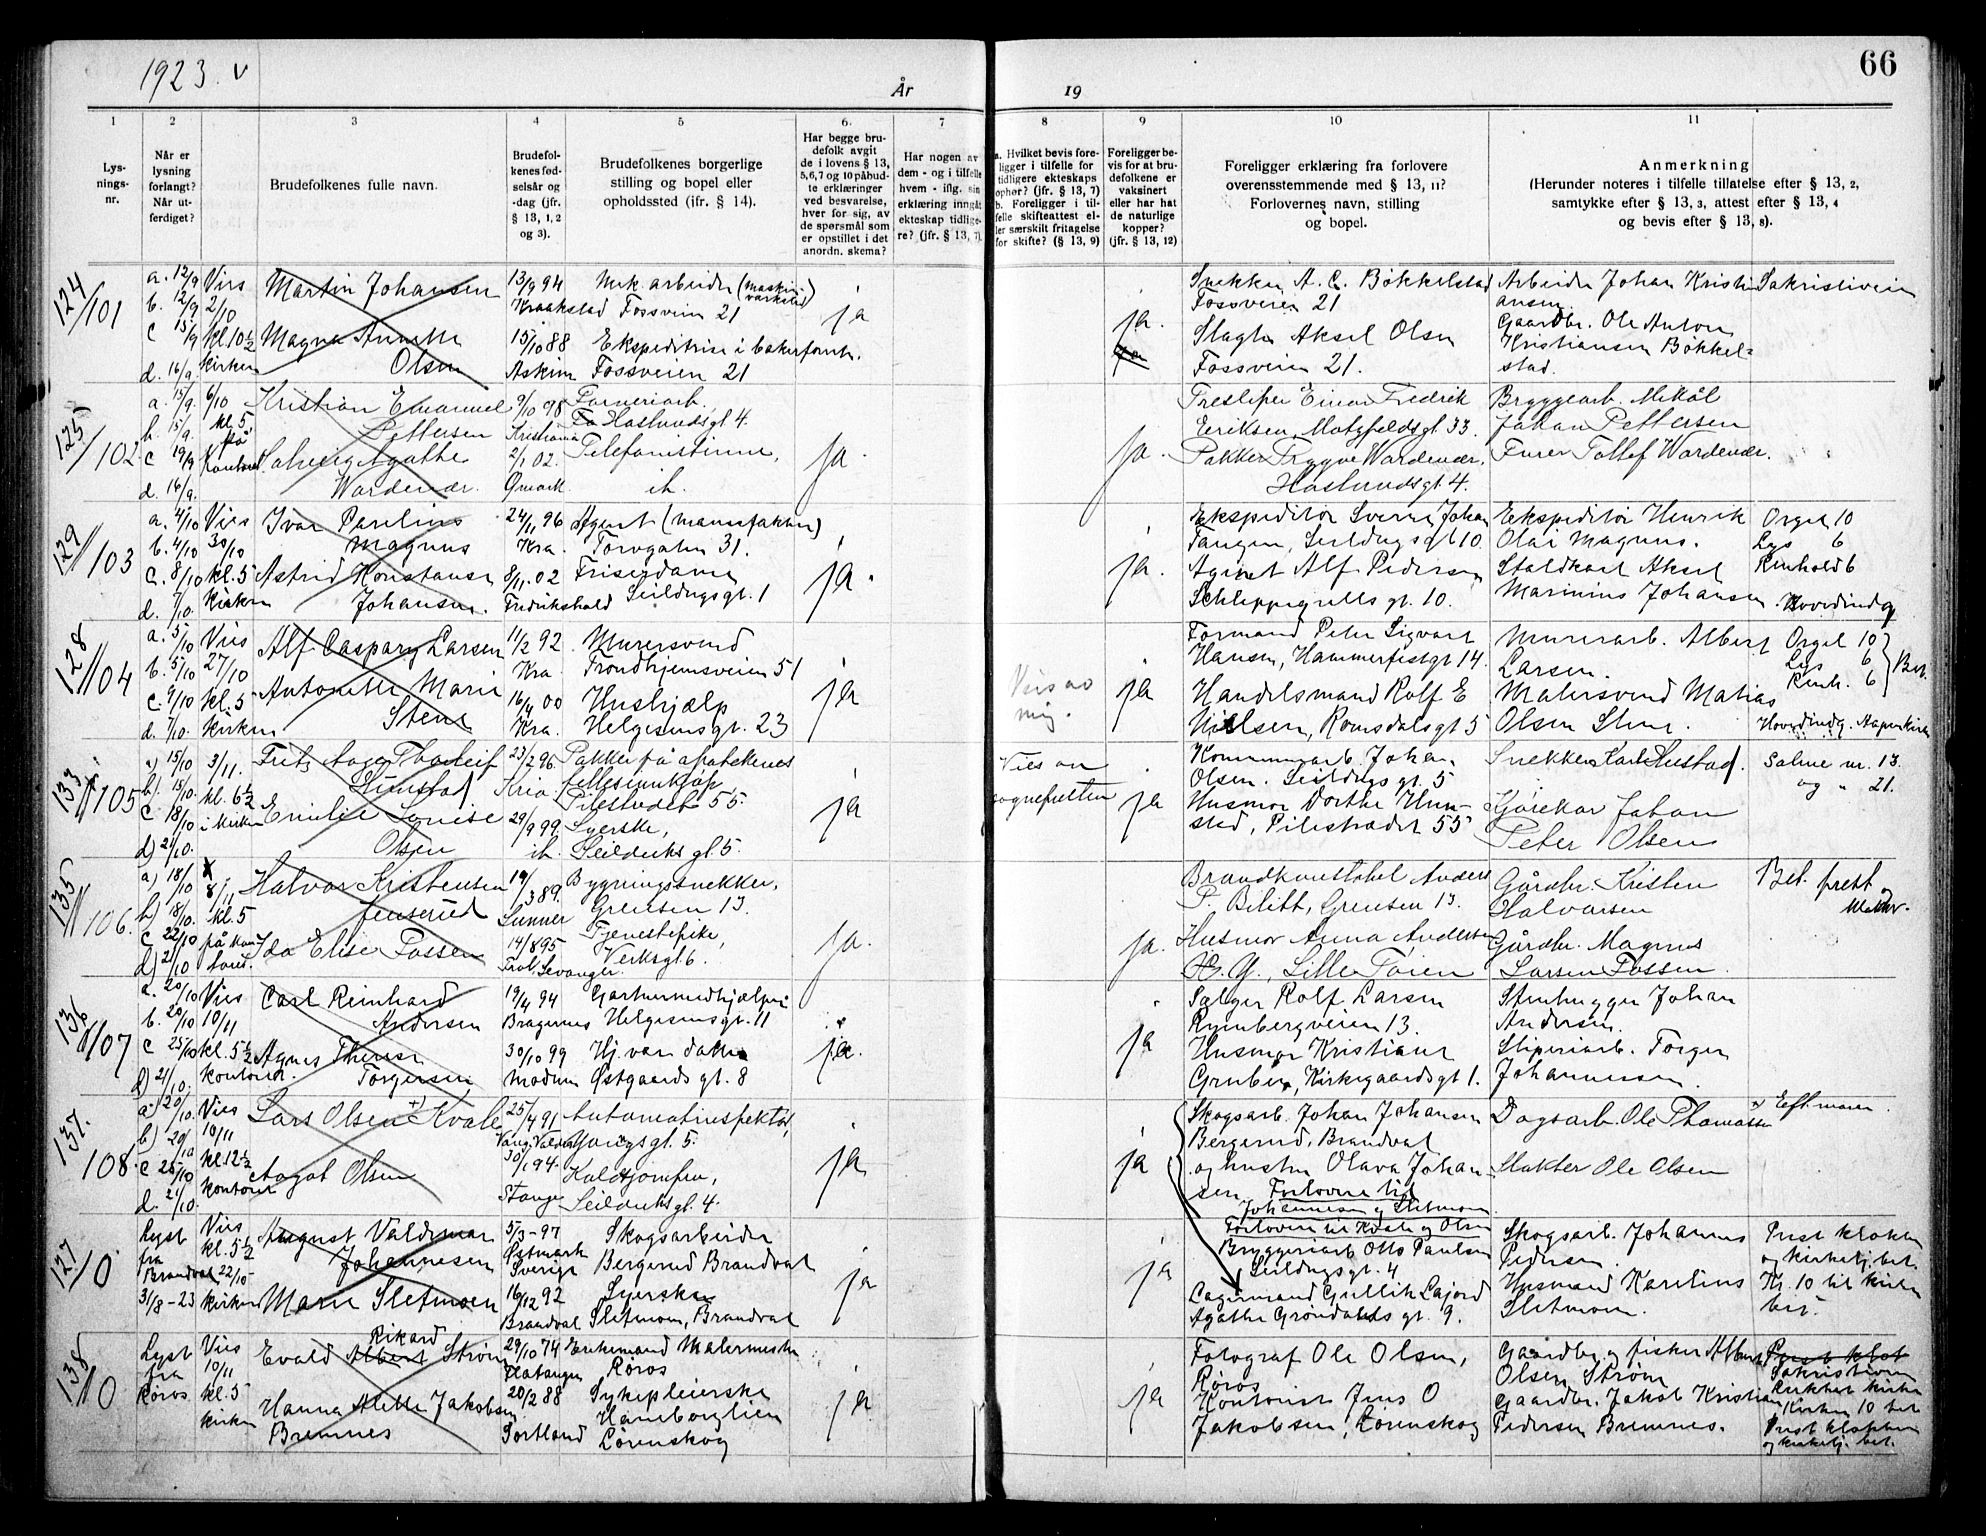 1923. v
År
19
66
1
2
3
4
5
6.
7
8
9
10
11
Lys-
nings-
nr.
Når er
lysning
forlangt?
Når ut-
ferdiget?
Brudefolkenes fulle navn.
Brudefol-
kenes fød-
selsår og
-dag (jfr.
§ 13, 1, 2
og 3).
Brudefolkenes borgerlige
stilling og bopel eller
opholdssted (ifr. § 14).
Har begge bru-
defolk avgit
de i lovens § 13,
5,6,7 og 10 påbud-
te erklæringer
ved besvarelse,
hver for sig, av
de spørsmål som
er opstillet i det
anordn. skema?
Har nogen av
dem - og i tilfelle
hvem - iflg. sin
erklæring inngåt
ekteskap tidlige-
re? (jfr. § 13, 7)
a. Hvilket bevis fore-
ligger i tilfelle for
tidligere ekteskaps
ophør? (jfr. § 13, 7)
b. Foreligger i til-
felle skifteattest el-
ler særskilt fritagelse
for skifte? (§ 13, 9)
Foreligger be-
vis for at bru-
defolkene er
vaksinert
eller har hat
de naturlige
kopper?
(jfr. § 13, 12)
Foreligger erklæring fra forlovere
overensstemmende med § 13, 11?
Forlovernes navn, stilling
og bopel.
Anmerkning
(Herunder noteres i tilfelle tillatelse efter § 13, 2,
samtykke efter § 13, 3, attest efter § 13, 4
og bevis efter § 13, 8).
124/101
a. 12/9
b. 12/9
c 15/9
d. 16/9
Vies
2/10
kl. 10 1/2
kirken
Martin Johansen
Magna Annette
Olsen
13/9 94
Kraakstad
15/10 88
Askim
Verk. arbeider (maskin-
verksted)
Fossveien 21
Ekspeditrise i bakerforretn.
Fossveien 21
ja
ja.
Snekker A. C. Bøkkelstad
Fossveien 21
Slagter Aksel Olsen
Fossveien 21.
Arbeider Johan Kristi
ansen.
Gaardbr. Ole Anton
Kristiansen Bøkkel-
stad.
Sakristiveien
125/102
a. 15/9.
b. 15/9.
c 19/9
d. 16/9.
6/10
kl. 5
på
Kontoret
Kristian Emanuel
Pettersen
Solveig Agathe
Wardenær.
9/10 98
Kristiania
2/1 02.
Ømark
Farveriarb.
Haslundsgt 4.
Telefonistinne,
ih.
ja.
ja.
Tresliper Einar Fredrik
Eriksen, Motzfeldsgt. 33.
Pakker Trygve Wardenær,
Haslundsgt. 4.
Bryggearb. Mikål
Johan Pettersen
Furer Tollef Wardenær.
129//103
a. 4/10
b. 4/10
c. 8/10
d. 7/10.
Vies
30/10
kl. 5
kirken
Ivar Paulins
Magnus
Astrid Konstanse
Johansen.
24/1 96
Kra.
8/11. 02
Fredrikshald
Agent (manufaktur)
Torvgaten 31.
Friserdame
Seildugsgt. 1
ja.
ja.
Ekspeditør Sverre Johan
Tangen, Seildugsgt 10.
Agent Alf Pedersen
Schleppegrellsgt. 10.
Ekspeditør Henrik
Olai Magnus.
Staldkarl Aksel
Marinius Johansen.
Orgel 10
Lys 6
Renhold 6
Hovedindg
128//104
a. 5/10
b. 5/10
c. 9/10
d. 7/10
Vies
27/10
kl. 5
kirken
Alf Caspary Larsen
Antonette Marie
Stene
11/2 92.
Kra.
16/4 00
Kra.
Murersvend
Trondhjemsveien 51
Hushjælp
Helgesensgt. 23
ja
Vies av
mig.
ja
Formand Peter Sigvart
Hansen, Hammerfestgt 14.
Handelsmand Rolf E
Nielsen, Romsdalsgt 5
Murerarb. Albert
Larsen.
Malersvend Matias
Olsen Stene.
Orgel 10
Lys 6
Renh. 6
Bet.
Hovedindg. Aapen kirke
133//105
a) 15/10
b) 15/10.
c. 18/10
d) 21/10.
3/11.
kl. 6 1/2
i kirken
Frits Aage Thorleif
Hunstad
Emilie Louise
Olsen
23/2 96.
Kria.
29/9 99.
ih.
Pakker på apotekenes
fellesinnkjøp
Pilestredet 55.
Syerske,
Seilduksgt. 5.
ja
Vies av
sognepresten
ja
Kommunearb. Johan
Olsen. Seildugsgt. 5
Husmor Dorthe Hun-
stad, Pilestrædet 55
Snekker Karl Hustad.
Kjørekar Johan
Peter Olsen
Salme nr. 13.
og " 21.
135//106.
a) 18/10
b) 18/10.
c 22/10
d) 2/10
8/11
kl. 5
på kon
toret.
Halvor Kristensen
Jenserud
Ida Elise Fossen
19/3 89.
Lunner
14/8 95
Frol, Levanger.
Bygningssnekker,
Grensen 13.
Tjenestepike,
Verksgt 6.
ja.
ja.
Brandkonstabel Anders
P. Bilitt, Grensen 13.
Husmor Anna Andersen
H. Y., Lille Tøien
Gårdbr. Kristen
Halvorsen
Gårdbr. Magnus
Larsen Fossen.
Bet. prest
136//107
a. 20/10
b. 20/10
c 25/10
d) 21/10.
Vies
10/11
kl. 5 1/2
kontoret.
Carl Reinhard
Andersen
Agnes Therese
Torgersen
19/4 94
Bragernes
30/10 99
Modum
Gartnermedhjælper
Helgesensgt. 11
Hj. vær. datter
Østgaardsgt. 8
ja.
ja
Sælger Rolf Larsen
Rymbergveien 13.
Husmor Kristiane
Gruber, Kirkegaardsgt 1.
Stenhugger Johan
Andersen.
Sliperiarb. Torger
Johannessen.
137.
108.
a. 20/10.
b) 20/10
c 25/10
d. 21/10.
Vies
10/11
kl 12 1/2
kontoret
Lars Olsen +) Kvale
Aagot Olsen
25/4 91
Vang, Valdres
30/1 94.
Stange
Automatinspektør,
Yongsgt. 5.
Koldtjomfru,
Seilduksgt. 4.
ja
ja
Skogsarb. Johan Johansen
Bergerud, Brandval
og hustru Olava Johan
sen. Forlovere til
Johannesen og Sletmoen.
Forlovere til Kvale og Olsen
Bryggeriarb Otto Paulsen
Seildugsgt. 4
Lagermand Gullik Lajord
Agathe Grøndalsgt. 9.
Dagsarb. Ole Thomassen
Slakter Ole Olsen
Eft. moren.
127/0
Lyst
fra
Brandval
31/8-23
Vies
kl. 5 1/2
22/10-
kirken
August Valdemar
Johannesen
Marie Sletmoen
5/3-97
Østmark
Sverige
16/12 92
Brandval
Skogsarbeider
Bergerud Brandval
Syerske
Sletmoen, Brandval
ja
ja
Skogsarb. Johannes
Pedersen.
Husmand Karelius
Sletmoen.
Prest klokker
og kirketj. bet.
Kr. 10 til kirken
bet.
138//0
Lyst
fra
Røros
Vies
10/11
kl. 5
kirken
Rikard
Evald Albert Strøm
Hanna Alette Jakobsen
Bremnes
29/10 74
Flatanger
20/2 88
Sortland
Enkemand Malermester
Røros
Sykepleierske
Hamborglien
Lørenskog
ja
ja
Fotograf Ole Olsen,
Røros
Kontorist Jens O
Jakobsen, Lørenskog
Gaardbr. og fisker Albert
Olsen Strøm
Gaardbr. Jakob Kristian
Pedersen Bremnes.
Prest klok
Sakristiveien
Kirken 10 bet
Prest klokker
og kirketj. bet.